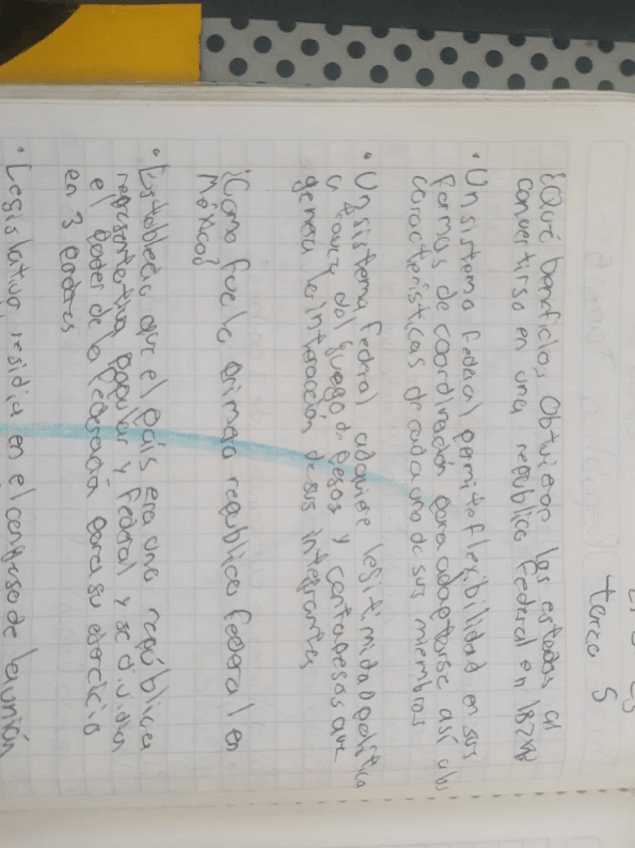 tarea 5
¿Qué beneficios Obtuvieron los estados al
convertirse en una republica Federal en 1824?
• Un sistema Federal permite flexibilidad en sus
formas de coordinación para adaptarse así a las
caracteristicas de cada uno de sus miembros
• Un sistema Federal adquiere legitimidad politica
a travez del juego de pesos y contrapesos que
genera la interacción de sus integrantes
¿Como fue la primera republica federal en
México?
• Establecio que el país era una república
representativa popular y Federal y se dividia
el poder de la federación para su ejercicio
en 3 poderes
• Legislativo residia en el congreso de la unión